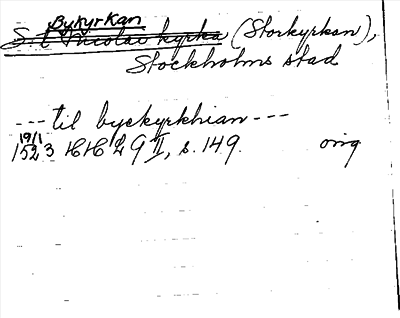 Bykyrkan
S:t Nicolai kyrka (Storkyrkan),
Stockholms stad
--- til byekyrkhian ---
19/1
1523 HH 29 II, s. 149. orig